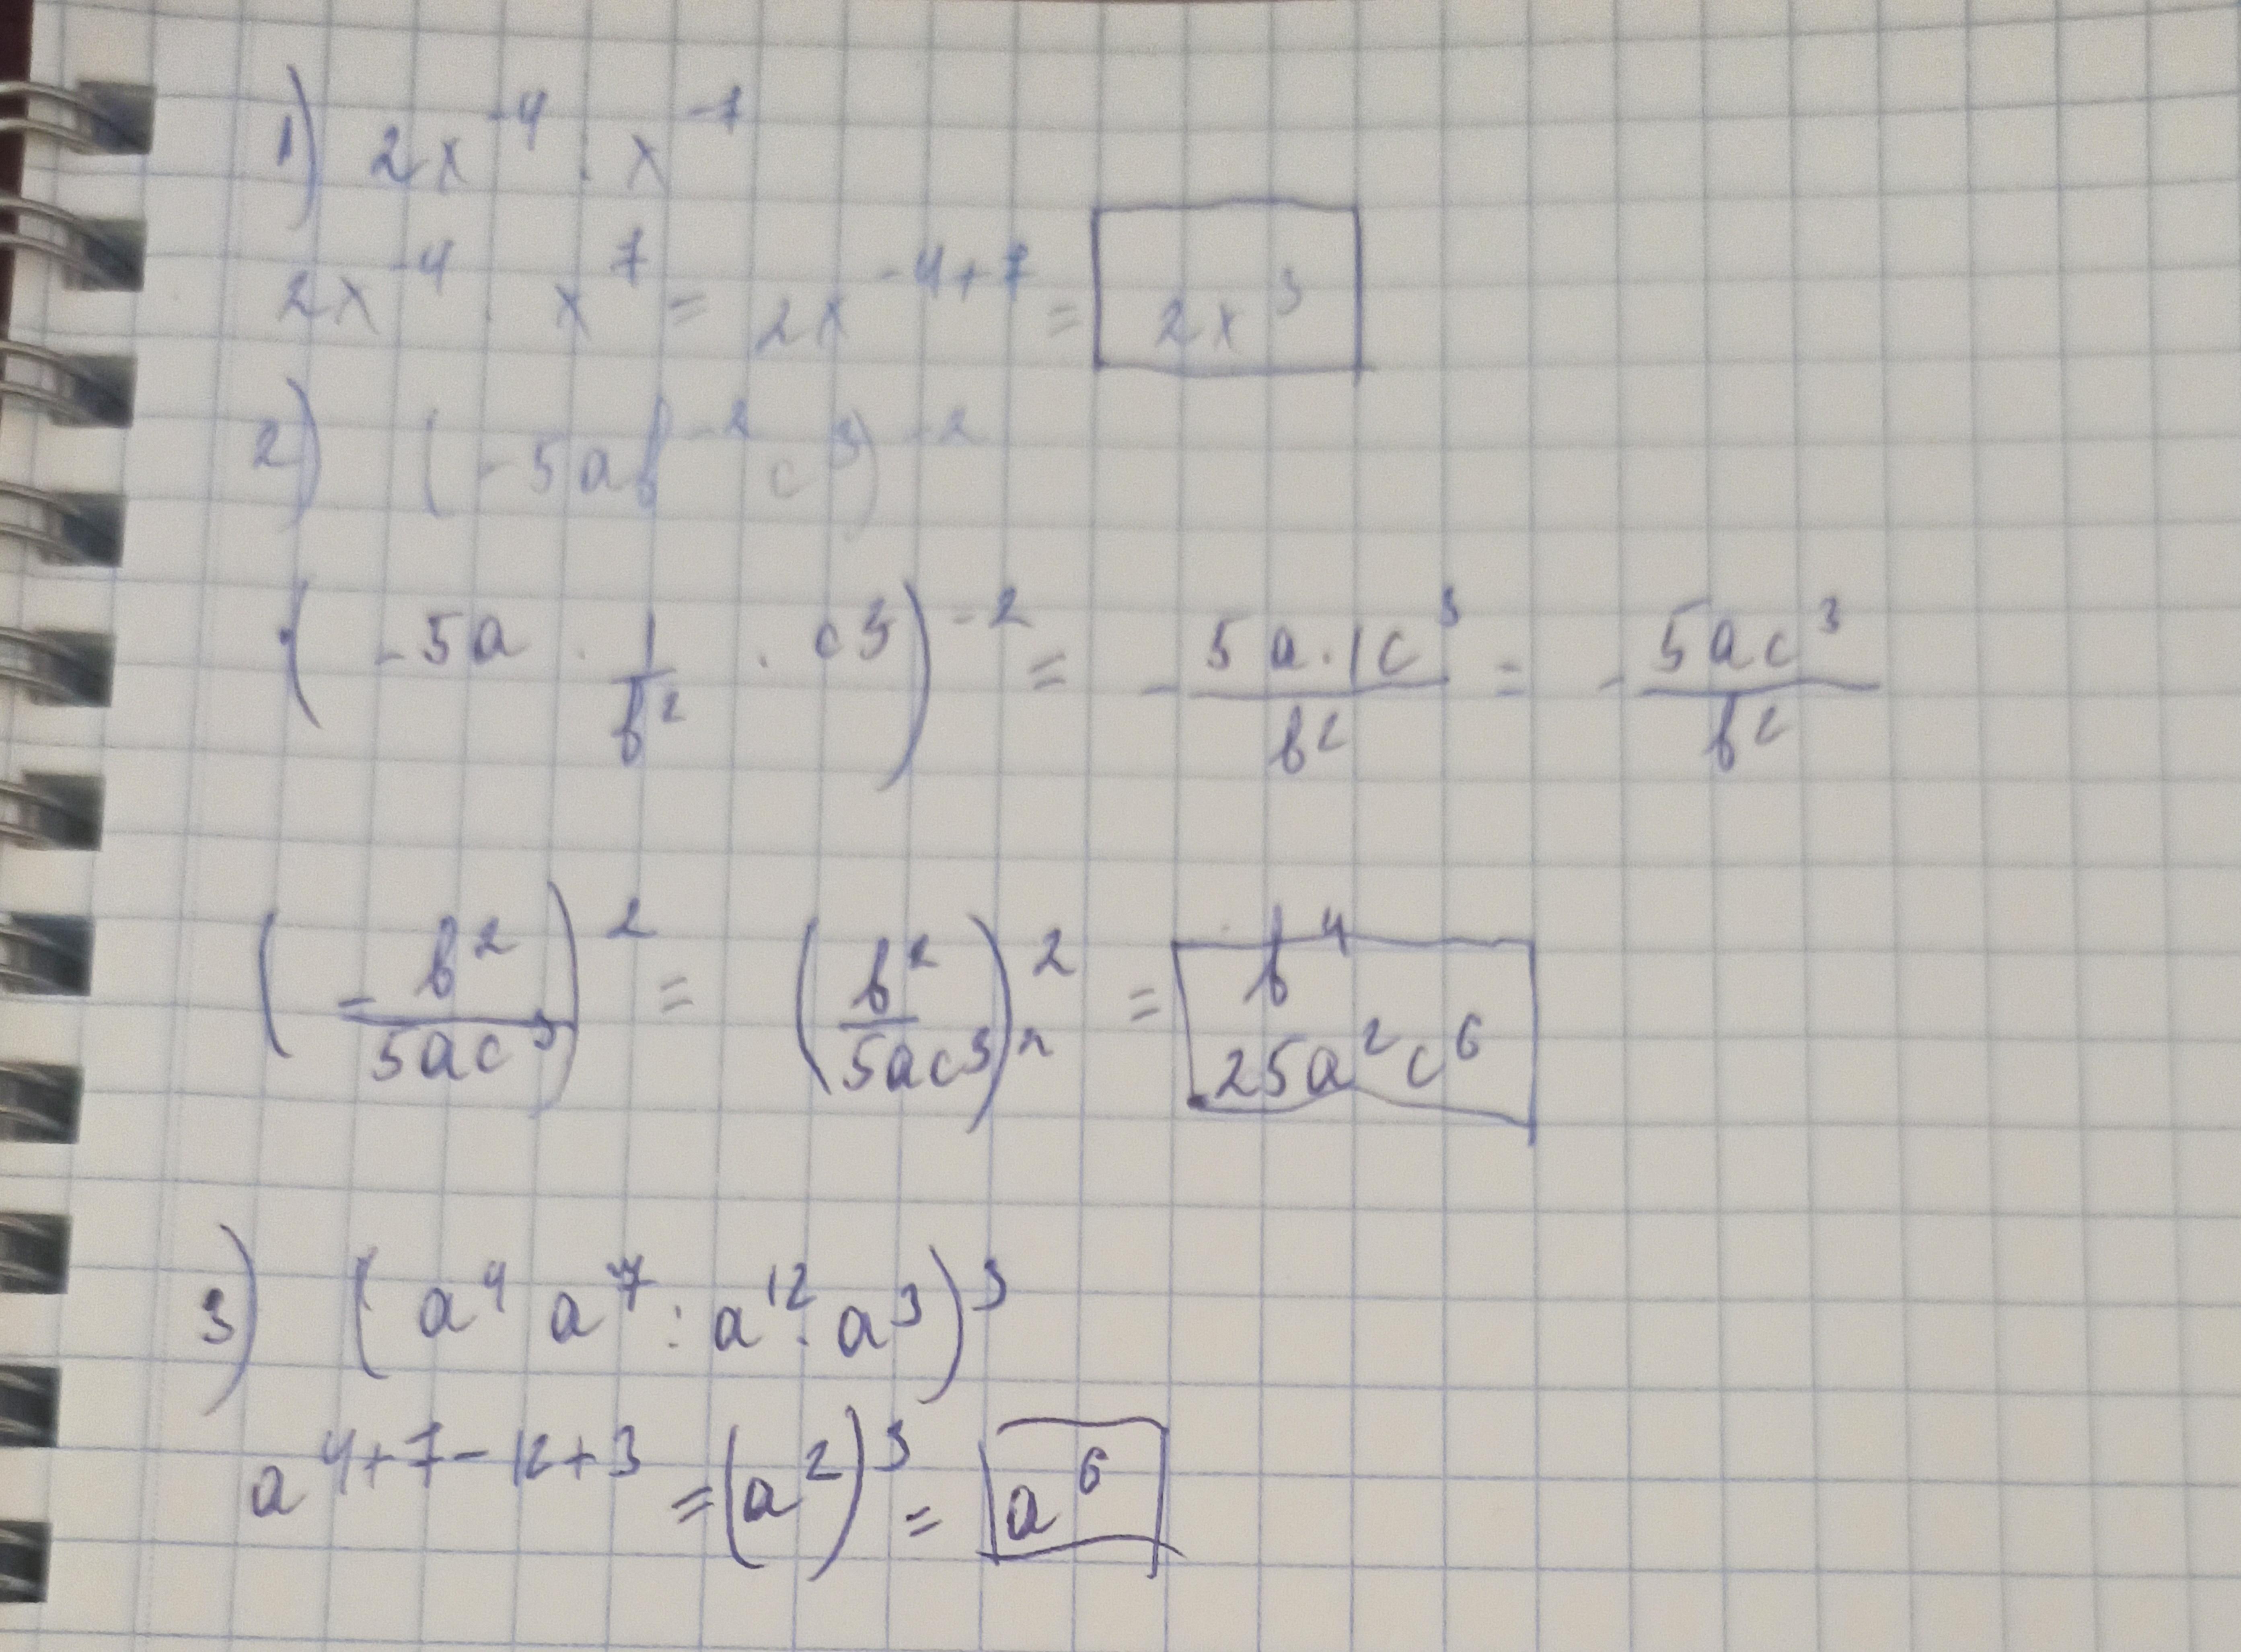 1) 2x⁻⁴ · x⁻⁷
2x⁻⁴ · x⁷ = 2x⁻⁴⁺⁷ = 2x³
2) (-5ab⁻² c³)⁻²
(-5a · 1/b² · c3)⁻² = - 5a·1c³/b² = - 5ac³/b²
(- b²/5ac³)² = (b²/5ac³)²₂ = b⁴ 25a²c⁶
3) (a⁴ a⁷ : a¹² · a³)³
a⁴⁺⁷⁻¹²⁺³ = (a²)³ = a⁶